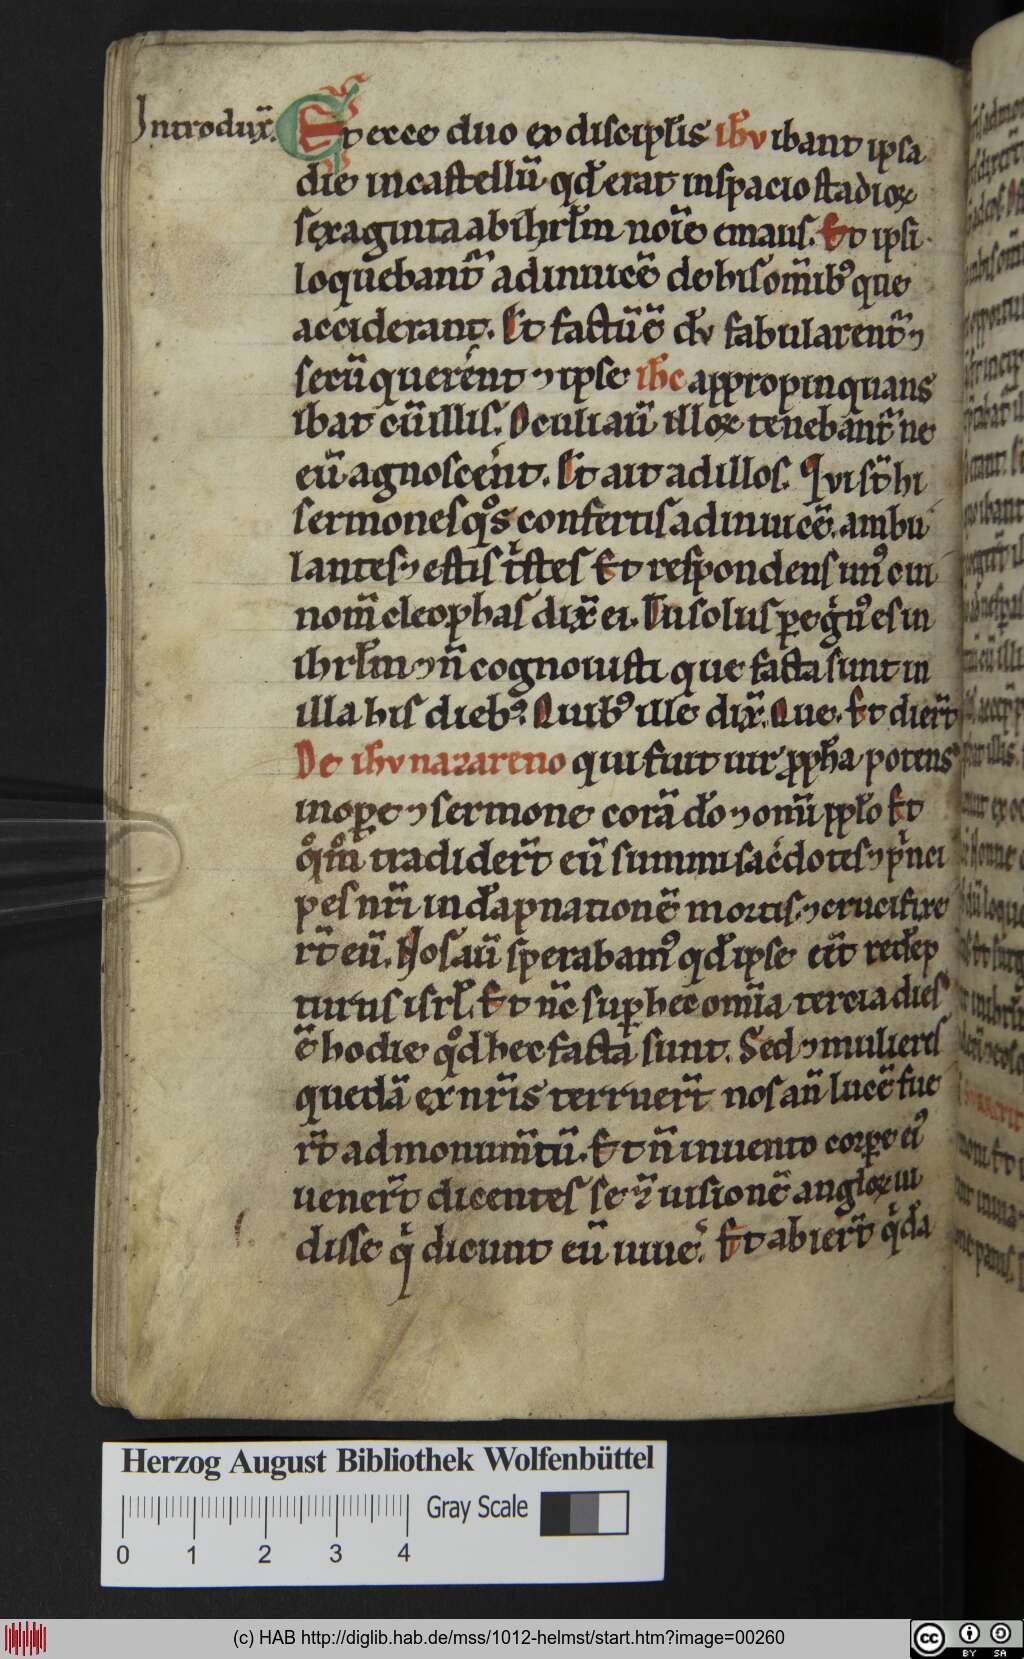 Introdux̄.
Et ecce duo ex discipl̄is ih̄v ibant ipsa
die in castellū qđ erat in spacio stadioꝝ
sexaginta ab ihrl̄m noīe emaus. Et ipsi
loquebant̄ adinuicē de his om̄ibꝰ que
acciderant. Et factū ē dv̄ fabularent̄ ⁊
secū querent ⁊ ipse ih̄c appropinquans
ibat cū illis. Oculi aū illoꝝ tenebant̄ ne
eū agnoscent. Et ait ad illos. Qvi st̄ hi
sermones qͦs confertis adinuicē. ambu
lantes ⁊ estis tͥstes Et respondens unꝰ cui
nom̄ cleophas dix̄ ei. Tu solus ꝑegͥnꝰ es in
ihrl̄m ⁊ n̄ cognouisti que facta sunt in
illa his diebꝰ. Quibꝰ ille dix̄. Que. Et dier̄t
De ih̄v nazareno qui fuit uir ꝓph̄a potens
in oꝑe ⁊ sermone corā dō ⁊ omī ppl̄o Et
qͦm̄ tradider̄t eū summi sac̄dotes ⁊ pͥnci
pes nr̄i in dāpnationē mortis ⁊ crucifixe
rt̄ eū. Nos aū sperabamꝰ qđ ipse eēt redēp
turus isrl̄. Et nc̄ suꝑ hec om̄ia tercia dies
ē hodie qͦd hec facta sunt. Sed ⁊ mulieres
quedā ex nr̄is terruer̄t nos an̄ lucē fue
rt̄ ad monum̄tū. Et n̄ inuento corꝑe eiꝰ
uener̄t dicentes se ⁊ uisionē angl̄oꝝ ui
disse qͥ dicunt eū uiue͛. Et abier̄t qͥdā
Herzog August Bibliothek Wolfenbüttel
Gray Scale
0 1 2 3 4
(c) HAB http://diglib.hab.de/mss/1012-helmst/start.htm?image=00260
cc BY SA